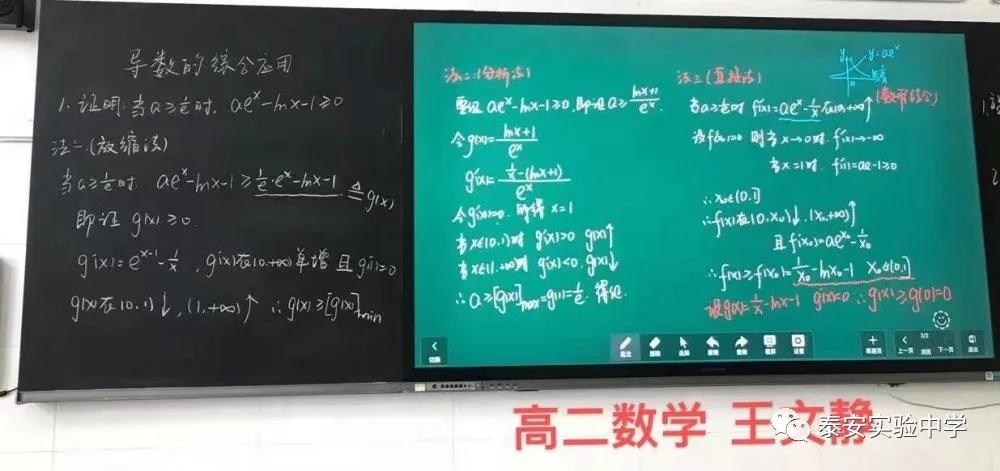 导数的综合应用
1.证明:当a≥1/e时, ae^x-lnx-1≥0
法一:(放缩法)
当a≥1/e时, ae^x-lnx-1≥1/e·e^x-lnx-1≜g(x)
即证 g(x)≥0.
g'(x)=e^(x-1)-1/x, g'(x)在(0,+∞)单增 且g'(1)=0
g(x)在(0,1)↓,(1,+∞)↑ ∴g(x)≥[g(x)]min
法二:(分析法)
要证 ae^x-lnx-1≥0,即证a≥(lnx+1)/e^x
令g(x)=(lnx+1)/e^x
g'(x)=(1/x-(lnx+1))/e^x
令g'(x)=0, 解得x=1
当x∈(0,1)时 g'(x)>0 g(x)↑
当x∈(1,+∞)时 g'(x)<0, g(x)↓
∴a≥[g(x)]max=g(1)=1/e. 得证.
法三(直接法)
y
y=ae^x
0
(数形结合)
当a≥1/e时 f'(x)=ae^x-1/x在(0,+∞)↑
设f'(x0)=0 则当x→0时, f'(x)→-∞
当x=1时, f'(1)=ae-1≥0
∴x0∈(0,1]
∴f(x)在(0,x0)↓,(x0,+∞)↑
且f'(x0)=ae^x0-1/x0
∴f(x)≥f(x0)=1/x0-lnx0-1 x0∈(0,1]
设g(x)=1/x-lnx-1 g'(x)<0 ∴g(x)≥g(0)=0
切换
批注
擦除
选择
撤销
设置
新建页
上一页
2/2
浏览
下一页
退出
高二数学 王文静
泰安实验中学